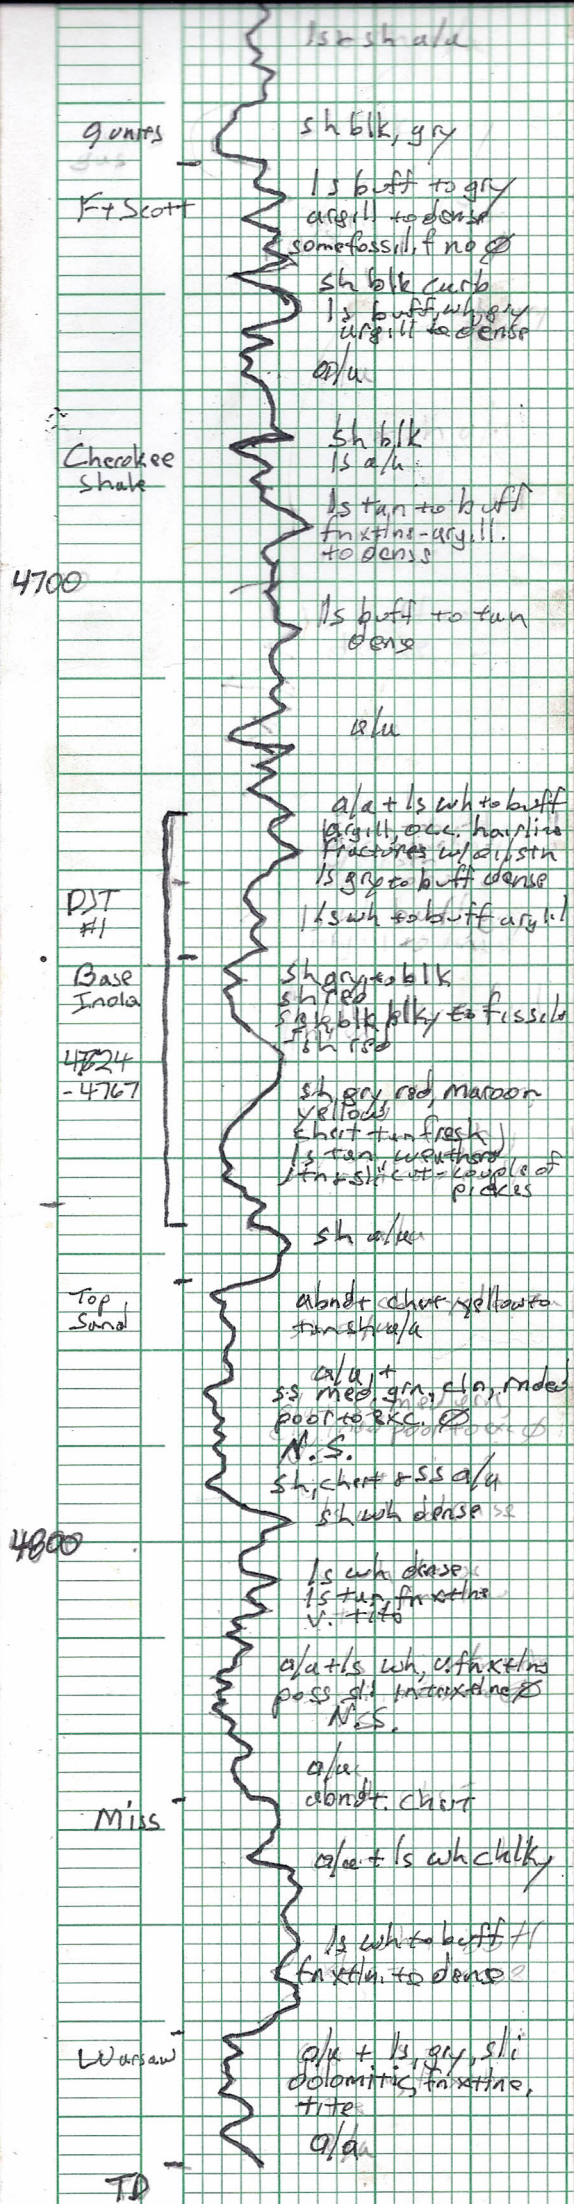 ls & sh a/a
9 units
gas
sh blk, gry
Ft Scott
ls buff to gry
argill to dense
some fossil.f no Ø
sh blk carb
ls buff, wh, gry
argill to dense
a/a
Cherokee
Shale
sh blk
ls a/a
ls tan to buff
fnxtlne-argill.
to dense
4700
ls buff to tan
dense
a/a
a/a + ls wh to buff
argill, occ. hairline
fractures w/oil/stn
ls gry to buff dense
ls wh to buff argill
DST
#1
Base
Inola
sh gry to blk
sh red
blk blky to fissile
sh red
4724
-4767
sh gry, red, maroon
yellow
chert tan fresh
ls tan, weathered
stn & sli cut - couple of
pieces
sh a/a
Top
Sand
abndt chert yellow to
tan sh a/a
a/a, +
ss med. grn, cln, rnded
poor to exc. Ø
N.S.
sh, chert & ss a/a
sh wh dense
4800
ls wh dense
ls tan, fnxtlne
v. tite
a/a + ls wh, v. fnxtlne
poss sli intraxtlne Ø
N.S.
a/a
abndt. chert
Miss
a/a + ls wh chlky
ls wh to buff
fnxtln. to dense
Warsaw
a/a + ls, gry, sli
dolomitic, fnxtlne,
tite
a/a
TD